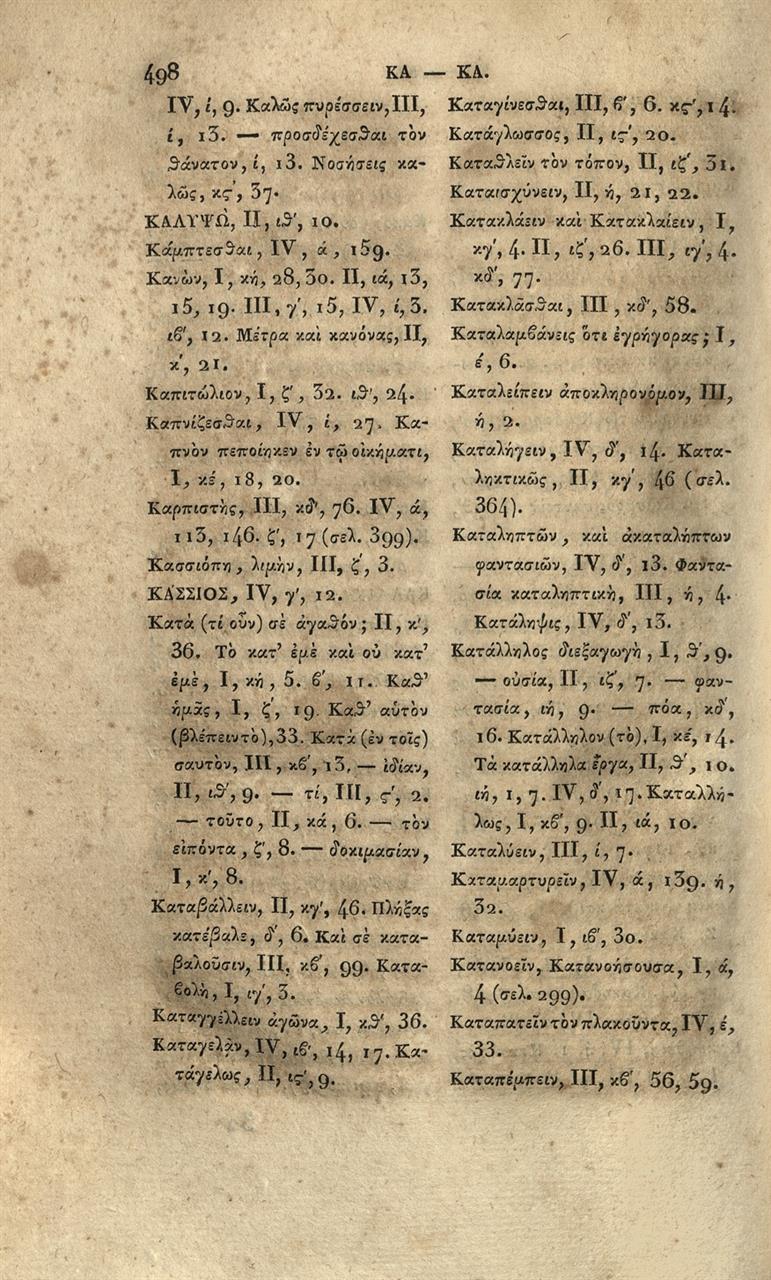 498
ΚΑ — ΚΑ.
IV, ί, 9. Καλῶς πυρέσσειν, III,
ί, 13. — προσδέχεσθαι τὸν
θάνατον, ί, 13. Νοσήσεις κα-
λῶς, κϛ', 37.
ΚΑΛΥΨΩ, II, ιθ', 10.
Κάμπτεσθαι, IV, ά, 159.
Κανὼν, I, κή, 28, 30. II, ιά, 13,
15, 19. III, γ', 15, IV, ί, 3.
ιβ', 12. Μέτρα καὶ κανόνας, II,
κ', 21.
Καπιτώλιον, I, ζ', 32. ιθ', 24.
Καπνίζεσθαι, IV, ί, 27. Κα-
πνὸν πεποίηκεν ἐν τῷ οἰκήματι,
I, κέ, 18, 20.
Καρπιστὴς, III, κδ', 76. IV, ά,
113, 146. ζ', 17 (σελ. 399).
Κασσιόπη, λιμὴν, III, ζ', 3.
ΚΑΣΣΙΟΣ, IV, γ', 12.
Κατὰ (τί οὖν) σὲ ἀγαθόν; II, κ',
36. Τὸ κατ' ἐμὲ καὶ οὐ κατ'
ἐμὲ, I, κή, 5. β', 11. Καθ'
ἡμᾶς, I, ζ', 19. Καθ' αὑτὸν
(βλέπειν τὸ), 33. Κατὰ (ἐν τοῖς)
σαυτὸν, III, κβ', 13. — ἰδίαν,
II, ιθ', 9. — τί, III, ϛ', 2.
— τοῦτο, II, κά, 6. — τὸν
εἰπόντα, ζ', 8. — δοκιμασίαν,
I, κ', 8.
Καταβάλλειν, II, κγ', 46. Πλήξας
κατέβαλε, δ', 6. Καὶ σὲ κατα-
βαλοῦσιν, III, κβ', 99. Κατα-
βολὴ, I, ιγ', 3.
Καταγγέλλειν ἀγῶνα, I, κθ', 36.
Καταγελᾶν, IV, ιβ', 14, 17. Κα-
τάγελως, II, ιϛ', 9.
Καταγίνεσθαι, III, β', 6. κϛ', 14.
Κατάγλωσσος, II, ιϛ', 20.
Καταθλεῖν τὸν τόπον, II, ιζ', 31.
Καταισχύνειν, II, ή, 21, 22.
Κατακλάειν καὶ Κατακλαίειν, I,
κγ', 4. II, ιζ', 26. III, ιγ', 4.
κδ', 77.
Κατακλᾶσθαι, III, κδ', 58.
Καταλαμβάνεις ὅτι ἐγρήγορας; I,
έ, 6.
Καταλείπειν ἀποκληρονόμον, III,
ή, 2.
Καταλήγειν, IV, δ', 14. Κατα-
ληκτικῶς, II, κγ', 46 (σελ.
364).
Καταληπτῶν, καὶ ἀκαταλήπτων
φαντασιῶν, IV, δ', 13. Φαντα-
σία καταληπτικὴ, III, ή, 4.
Κατάληψις, IV, δ', 13.
Κατάλληλος διεξαγωγὴ, I, θ', 9.
— οὐσία, II, ιζ', 7. — φαν-
τασία, ιή, 9. — πόα, κδ',
16. Κατάλληλον (τὸ), I, κέ, 14.
Τὰ κατάλληλα ἔργα, II, θ', 10.
ιή, 1, 7. IV, δ', 17. Καταλλή-
λως, I, κβ', 9. II, ιά, 10.
Καταλύειν, III, ί, 7.
Καταμαρτυρεῖν, IV, ά, 139. ή,
32.
Καταμύειν, I, ιβ', 30.
Κατανοεῖν, Κατανοήσουσα, I, ά,
4 (σελ. 299).
Καταπατεῖν τὸν πλακοῦντα, IV, έ,
33.
Καταπέμπειν, III, κβ', 56, 59.